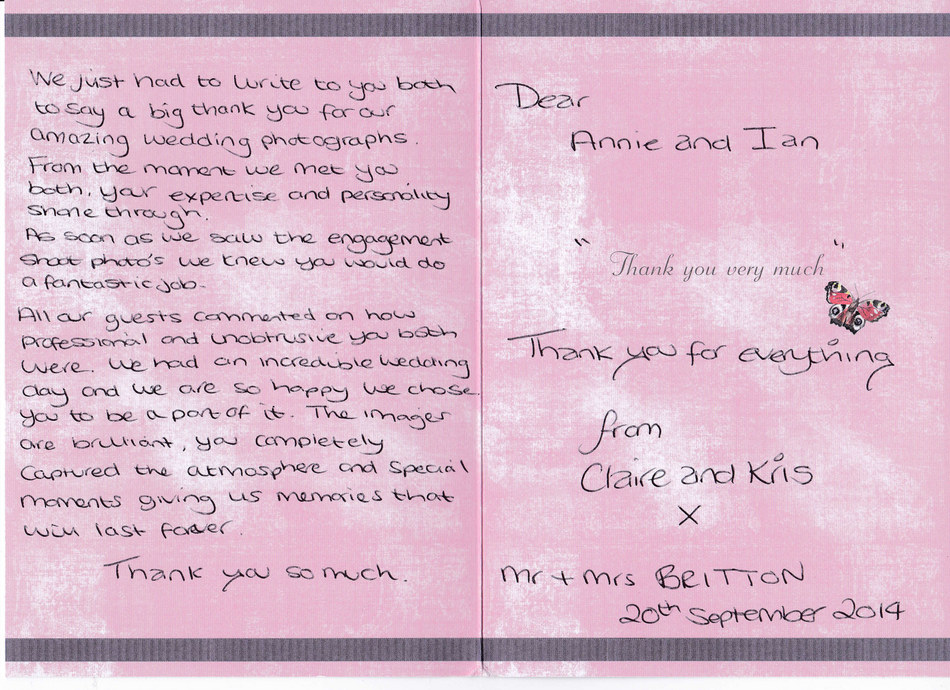 We just had to write to you both
to say a big thank you for our
amazing wedding photographs.
From the moment we met you
both, your expertise and personality
shone through.
As soon as we saw the engagement
shoot photo's we knew you would do
a fantastic job.
All our guests commented on how
professional and unobtrusive you both
were. We had an incredible wedding
day and we are so happy we chose
you to be a part of it. The images
are brilliant, you completely
captured the atmosphere and special
moments giving us memories that
will last forever.
Thank you so much.
Dear
Annie and Ian
" Thank you very much "
Thank you for everything
from
Claire and Kris
X
Mr + Mrs BRITTON
20th September 2014